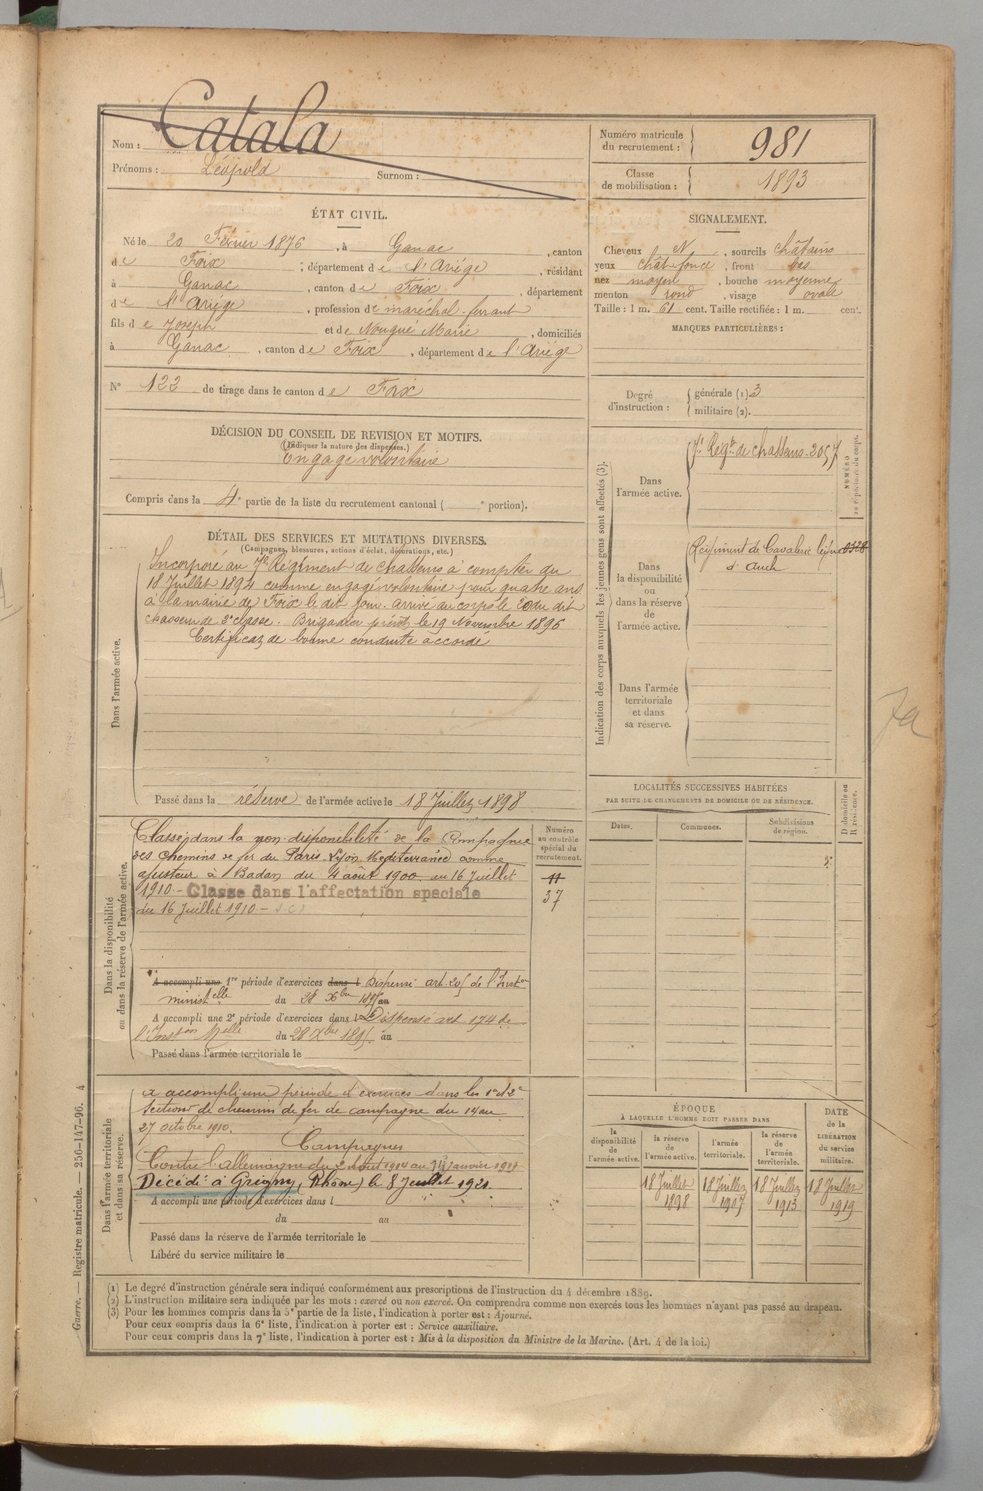 Nom : Catala
Prénoms : Léopold Surnom :
Numéro matricule du recrutement : 981
Classe de mobilisation : 1893
ÉTAT CIVIL.
Né le 20 Février 1876, à Ganac, canton
de Foix, département de l'Ariège, résidant
à Ganac, canton de Foix, département
de l'Ariège, profession de maréchal ferrant
fils de Joseph et de Nougué Marie, domiciliés
à Ganac, canton de Foix, département de l'Ariège
SIGNALEMENT.
Cheveux N, sourcils châtains
yeux chât foncé, front bas
nez moyen, bouche moyenne
menton rond, visage ovale
Taille : 1 m. 61 cent. Taille rectifiée : 1 m. cent.
MARQUES PARTICULIÈRES :
N° 122 de tirage dans le canton de Foix
Degré d'instruction : générale (1) 3
militaire (2).
DÉCISION DU CONSEIL DE REVISION ET MOTIFS.
(Indiquer la nature des dispenses.)
Engagé volontaire
Compris dans la 4e partie de la liste du recrutement cantonal ( e portion).
DÉTAIL DES SERVICES ET MUTATIONS DIVERSES.
(Campagnes, blessures, actions d'éclat, décorations, etc.)
Dans l'armée active.
Incorporé au 7e Régiment de chasseurs à compter du
18 Juillet 1894 comme engagé volontaire pour quatre ans
à la mairie de Foix le dit jour. Arrivé au corps le 20 du dit
chasseur de 2e classe. Brigadier le 19 Novembre 1896
Certificat de bonne conduite accordé
Passé dans la réserve de l'armée active le 18 Juillet 1898
Indication des corps auxquels les jeunes gens sont affectés (3).
Dans l'armée active.
7e Regt de chasseurs 2057
NUMÉRO au répertoire du corps.
Dans la disponibilité ou dans la réserve de l'armée active.
Régiment de Cavalerie légère 0328
d'Auch
Dans l'armée territoriale et dans sa réserve.
7a
Dans la disponibilité ou dans la réserve de l'armée active.
Classé dans la non-disponibilité de la Compagnie
des chemins de fer du Paris Lyon Mediterranée comme
ajusteur à Badan du 4 août 1900 au 16 Juillet
1910 - Classé dans l'affectation spéciale
du 16 Juillet 1910 -
A accompli une 1re période d'exercices dans l Dispensé art. 205 de l'Inston
ministelle du 28 Xbre 1895 au
A accompli une 2e période d'exercices dans l Dispensé art. 174 de
l'Inston Melle du 28 Xbre 1895 au
Passé dans l'armée territoriale le
Numéro au contrôle spécial du recrutement.
11
37
LOCALITÉS SUCCESSIVES HABITÉES
PAR SUITE DE CHANGEMENTS DE DOMICILE OU DE RÉSIDENCE.
Dates. Communes. Subdivisions de région. D domicile ou R résidence.
Dans l'armée territoriale et dans sa réserve.
A accompli une période d'exercices dans les 1re et 2e
sections de chemin de fer de campagne du 14 au
27 octobre 1910.
Campagnes
Contre l'allemagne du 2 Août 1914 au Janvier 1919
Décédé à Grigny, (Rhône) le 8 Juillet 1921.
A accompli une période d'exercices dans l
du au
Passé dans la réserve de l'armée territoriale le
Libéré du service militaire le
ÉPOQUE
À LAQUELLE L'HOMME DOIT PASSER DANS
la disponibilité de l'armée active.
la réserve de l'armée active. 18 Juillet 1898
l'armée territoriale. 18 Juillet 1907
la réserve de l'armée territoriale. 18 Juillet 1913
DATE de la LIBÉRATION du service militaire. 18 Juillet 1919
Guerre. — Registre matricule. — 256-147-96. 4
(1) Le degré d'instruction générale sera indiqué conformément aux prescriptions de l'instruction du 4 décembre 1889.
(2) L'instruction militaire sera indiquée par les mots : exercé ou non exercé. On comprendra comme non exercés tous les hommes n'ayant pas passé au drapeau.
(3) Pour les hommes compris dans la 5e partie de la liste, l'indication à porter est : Ajourné.
Pour ceux compris dans la 6e liste, l'indication à porter est : Service auxiliaire.
Pour ceux compris dans la 7e liste, l'indication à porter est : Mis à la disposition du Ministre de la Marine. (Art. 4 de la loi.)